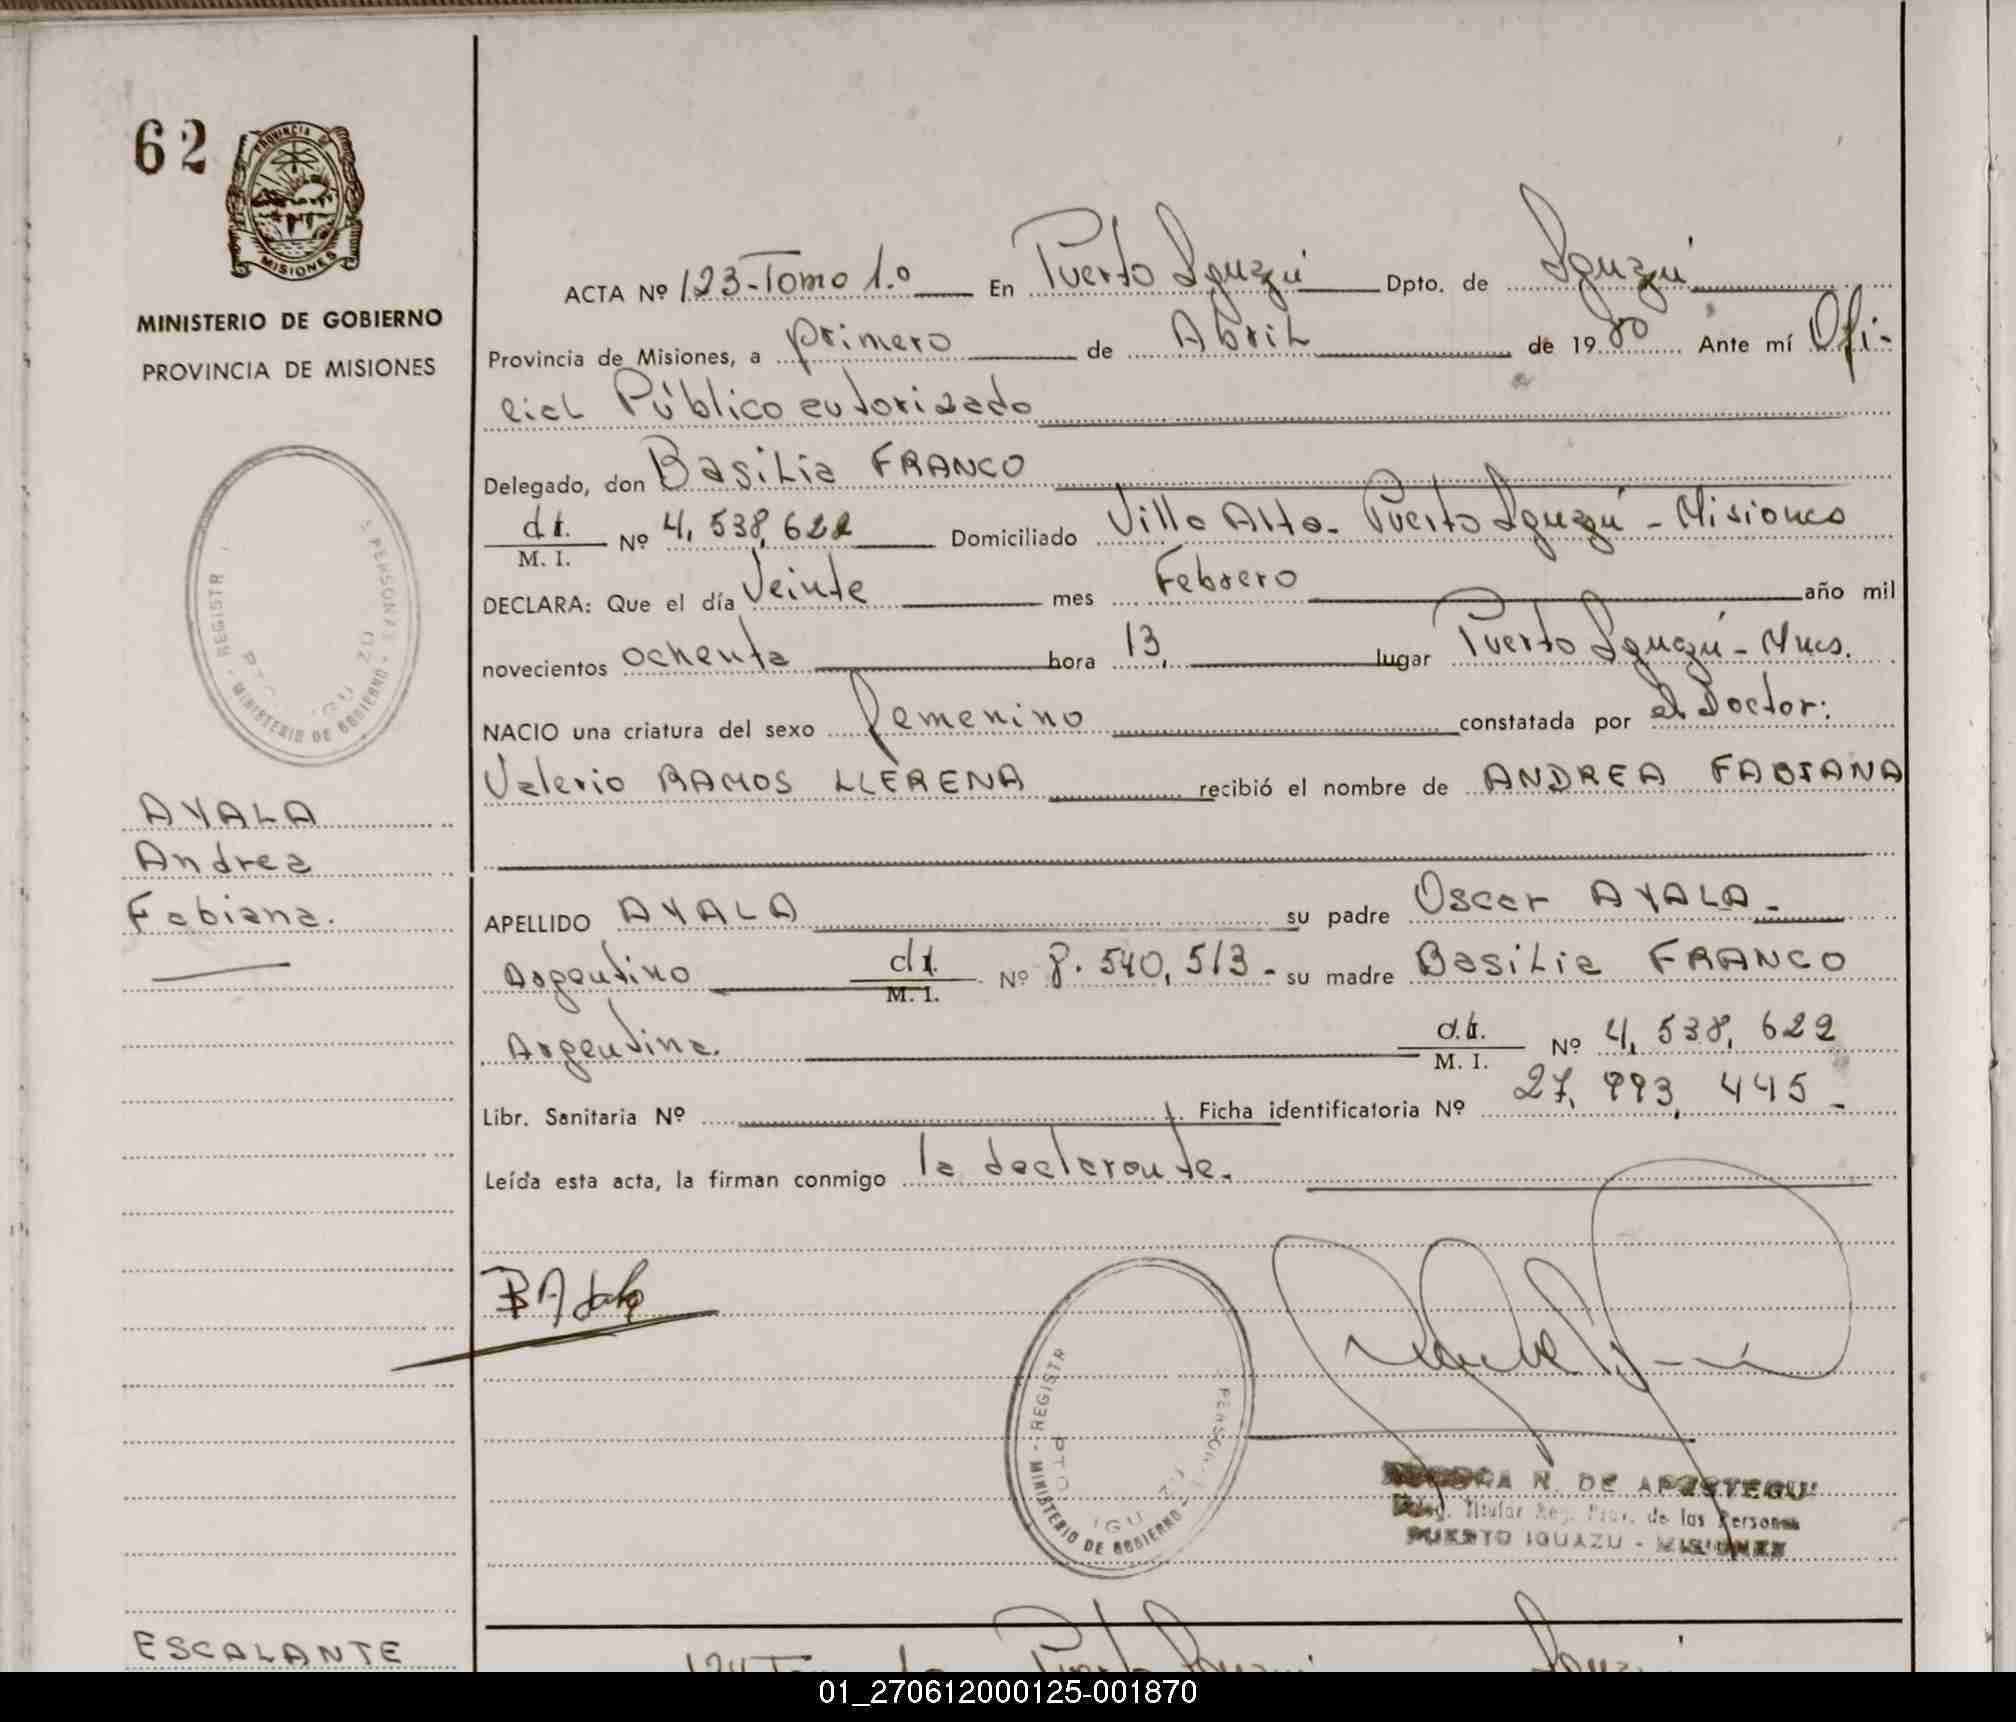 62
PROVINCIA DE
MISIONES
MINISTERIO DE GOBIERNO
PROVINCIA DE MISIONES
ACTA Nº 123-Tomo 1.º En Puerto Iguazú Dpto. de Iguazú
Provincia de Misiones, a primero de Abril de 1980 Ante mí Ofi-
cial Público autorizado
Delegado, don Basilia FRANCO
d.i. M. I. Nº 4,538,622 Domiciliado Villa Alta- Puerto Iguazú - Misiones
DECLARA: Que el día Veinte mes Febrero año mil
novecientos ochenta hora 13, lugar Puerto Iguazú - Mnes.
NACIO una criatura del sexo femenino constatada por el Doctor:
Valerio RAMOS LLERENA recibió el nombre de ANDREA FABIANA
AYALA
Andrea
Fabiana.
APELLIDO AYALA su padre Oscar AYALA-
Argentino d.i. M. I. Nº 8.540,513- su madre Basilia FRANCO
Argentina. d.i. M. I. Nº 4,538,622
Libr. Sanitaria Nº Ficha identificatoria Nº 27,993,445-
Leída esta acta, la firman conmigo la declarante.
REGISTR PERSON
PTO IGU
MINISTERIO DE GOBIERNO
N. DE APESTEGUI
Titular Reg. Prov. de las Personas
PUERTO IGUAZU - MISIONES
ESCALANTE
01_270612000125-001870